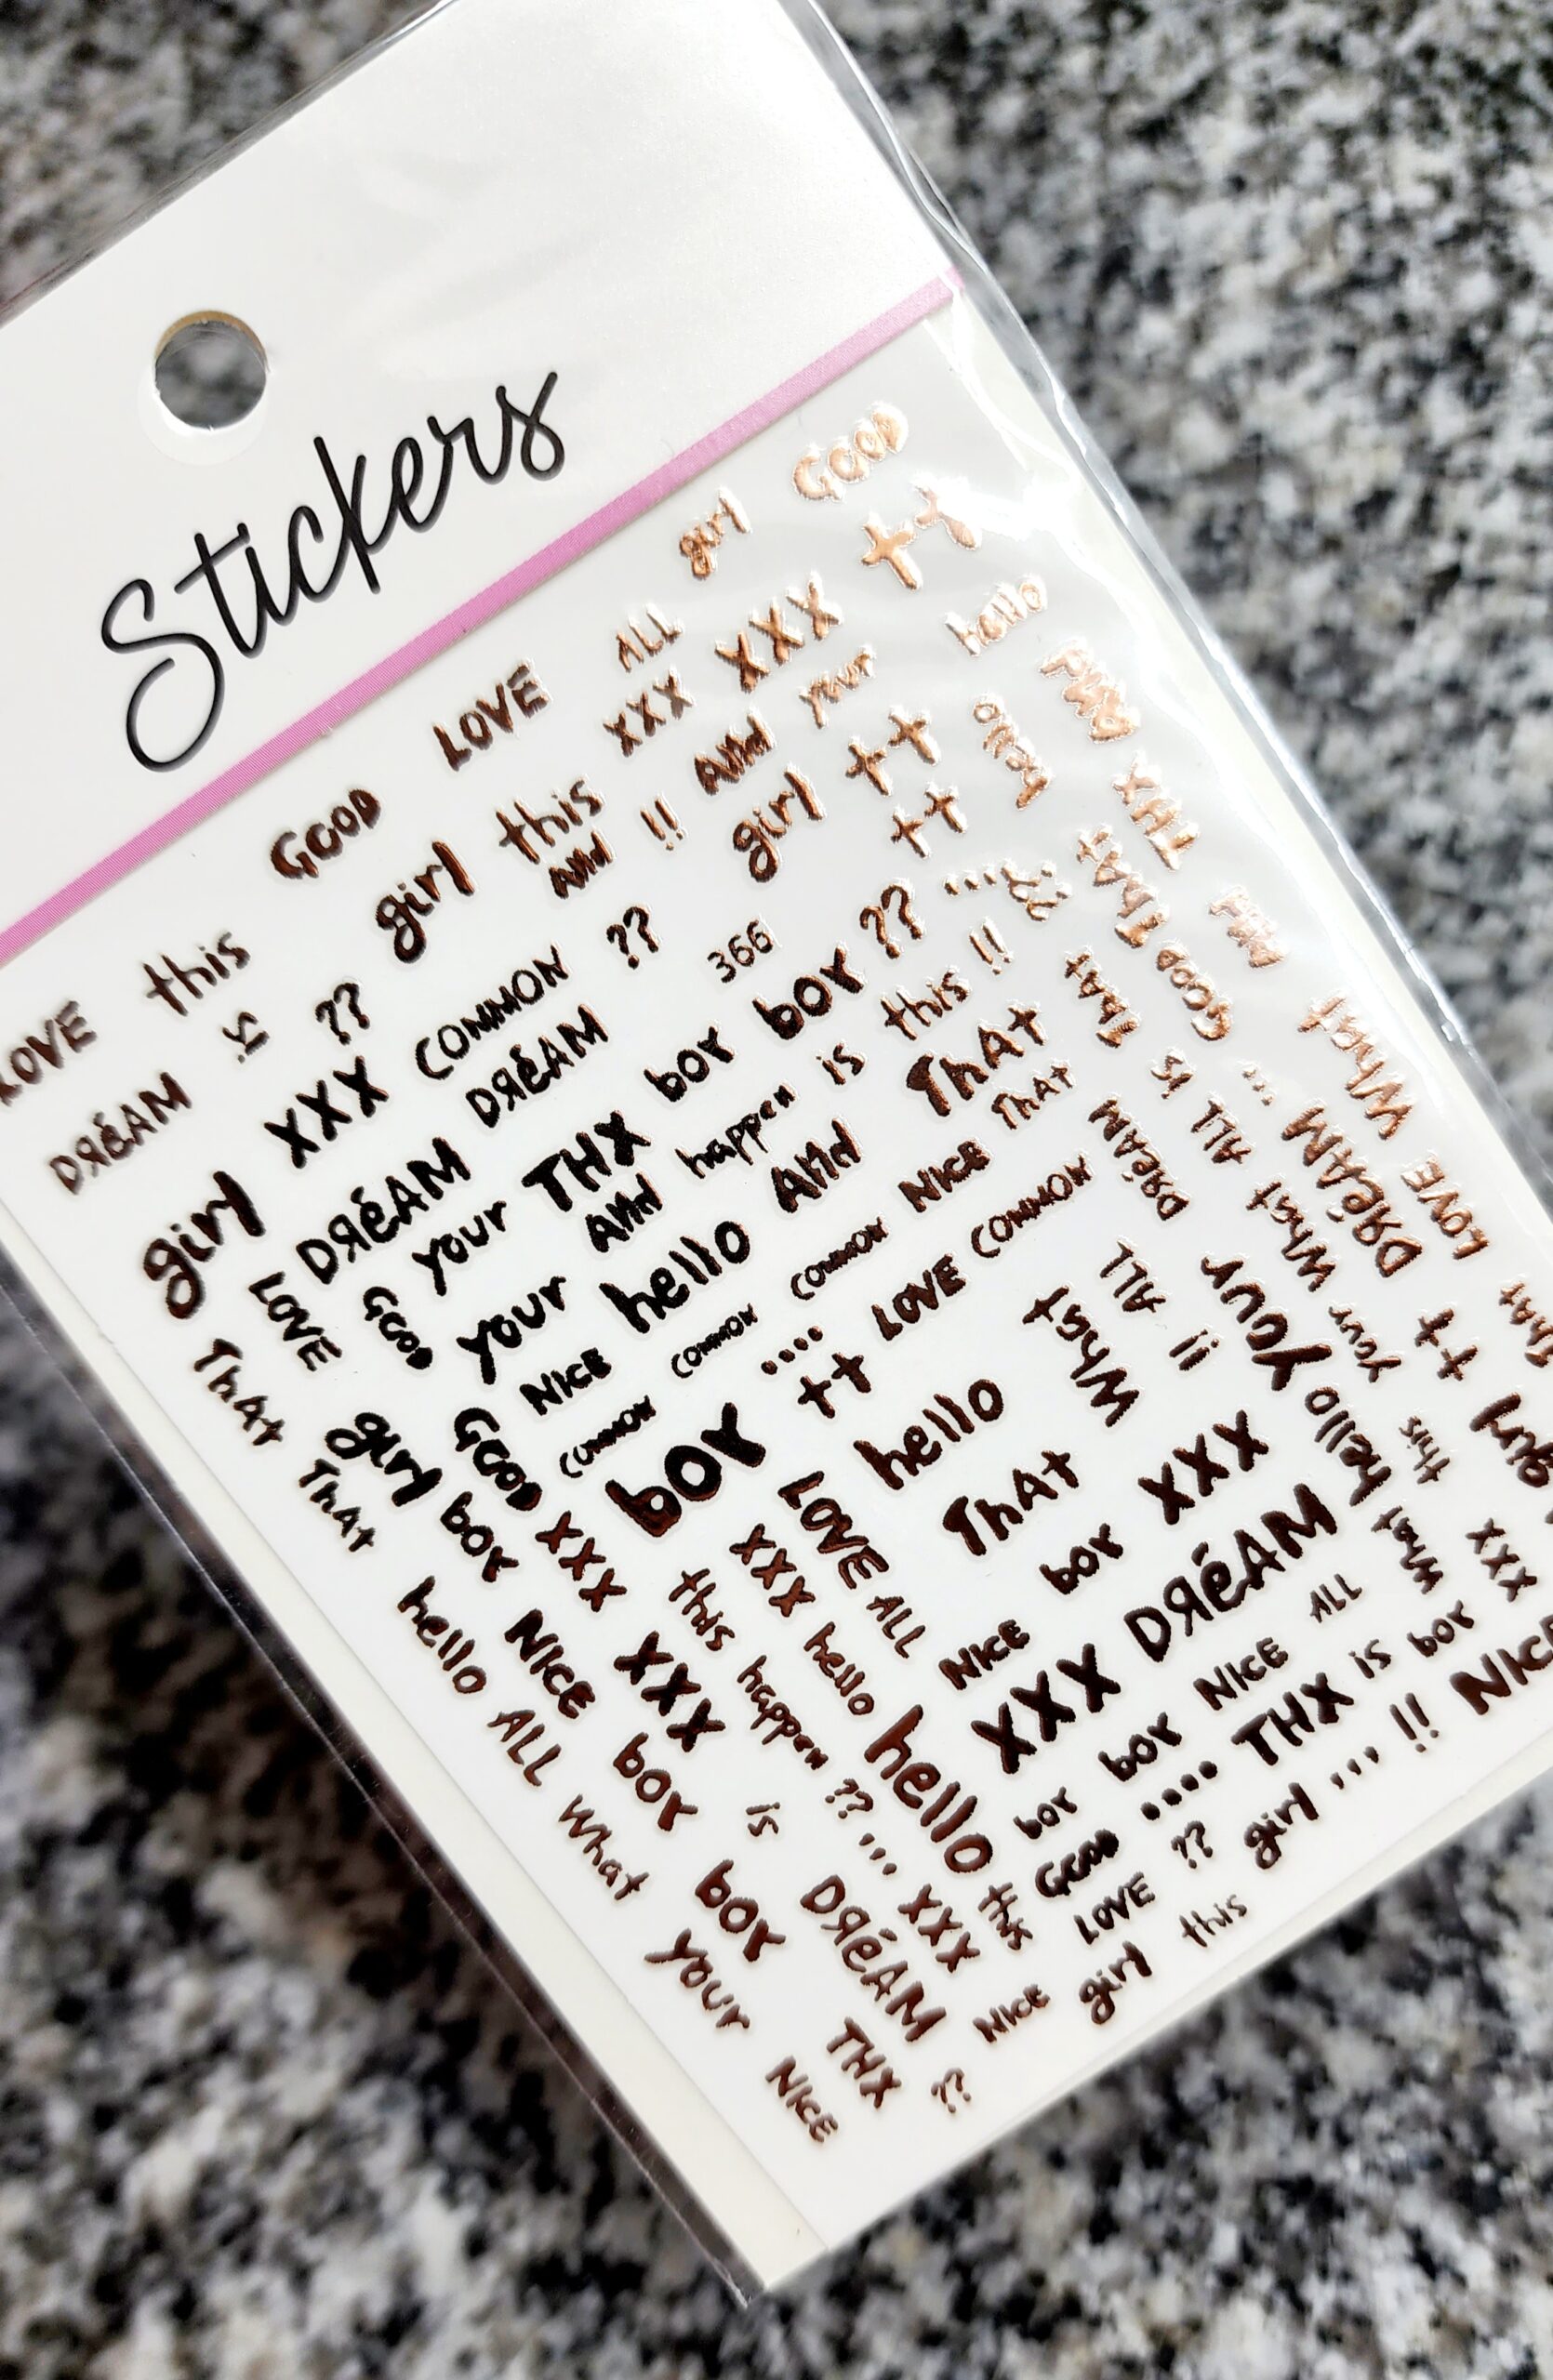 Stickers
GOOD
girl
++
LOVE ALL XXX hello
GOOD this XXX AND your AND
LOVE this girl AND !! girl ++ hello THX
is ?? COMMON ?? ++ THAT AND
DRéAM XXX DRéAM 366 boy ?? .... ?? THAT GOOD
girl DRéAM THX boy this !! THAT GOOD What
LOVE GOOD your AND happen is THAT is ALL ... DRéAM LOVE
THAT your hello AND NICE THAT DRéAM What DRéAM
girl NICE COMMON COMMON LOVE COMMON ALL your your ++ THAT
THAT boy GOOD COMMON .... ++ What !! hello this girl
XXX boy hello THAT XXX What XXX
hello NICE XXX this XXX LOVE ALL boy DRéAM ALL boy NICE
ALL boy happen hello NICE XXX NICE is
What is ?? hello boy boy THX !!
boy ... this GOOD .... girl ...
your DRéAM XXX LOVE ??
THX NICE girl this
NICE ??